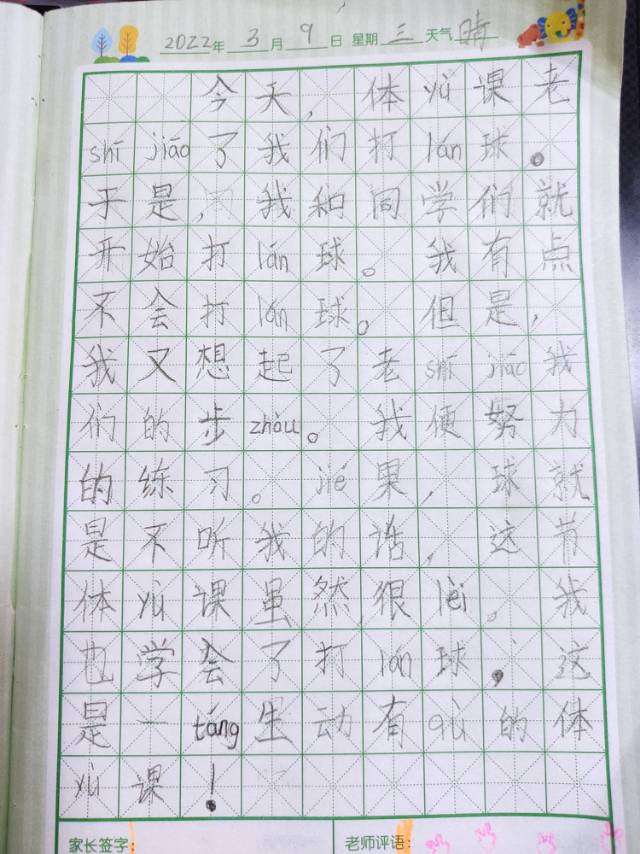 2022年3月9日 星期三 天气晴
今天，体yù课老
shī jiāo了我们打lán球。
于是，我和同学们就
开始打lán球。我有点
不会打lán球。但是，
我又想起了老shī jiāo我
们的步zhòu。我便努力
的练习。jié果，球就
是不听我的话，这节
体yù课虽然很lèi。我
也学会了打lán球，这
是一táng生动有qù的体
yù课！
家长签字： 老师评语：